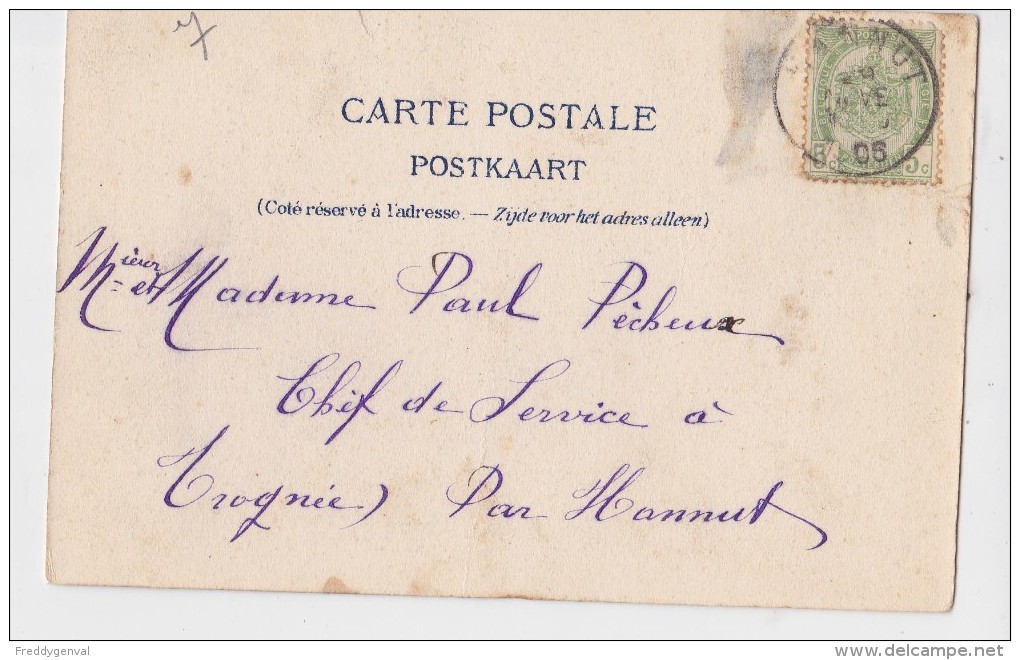 HANNUT
06
CARTE POSTALE
POSTKAART
(Coté réservé à l'adresse. — Zijde voor het adres alleen)
Mieur et Madame Paul Pêcheux
Chéf de Service à
Trognée) Par Hannut
Freddygenval
delcampe.net